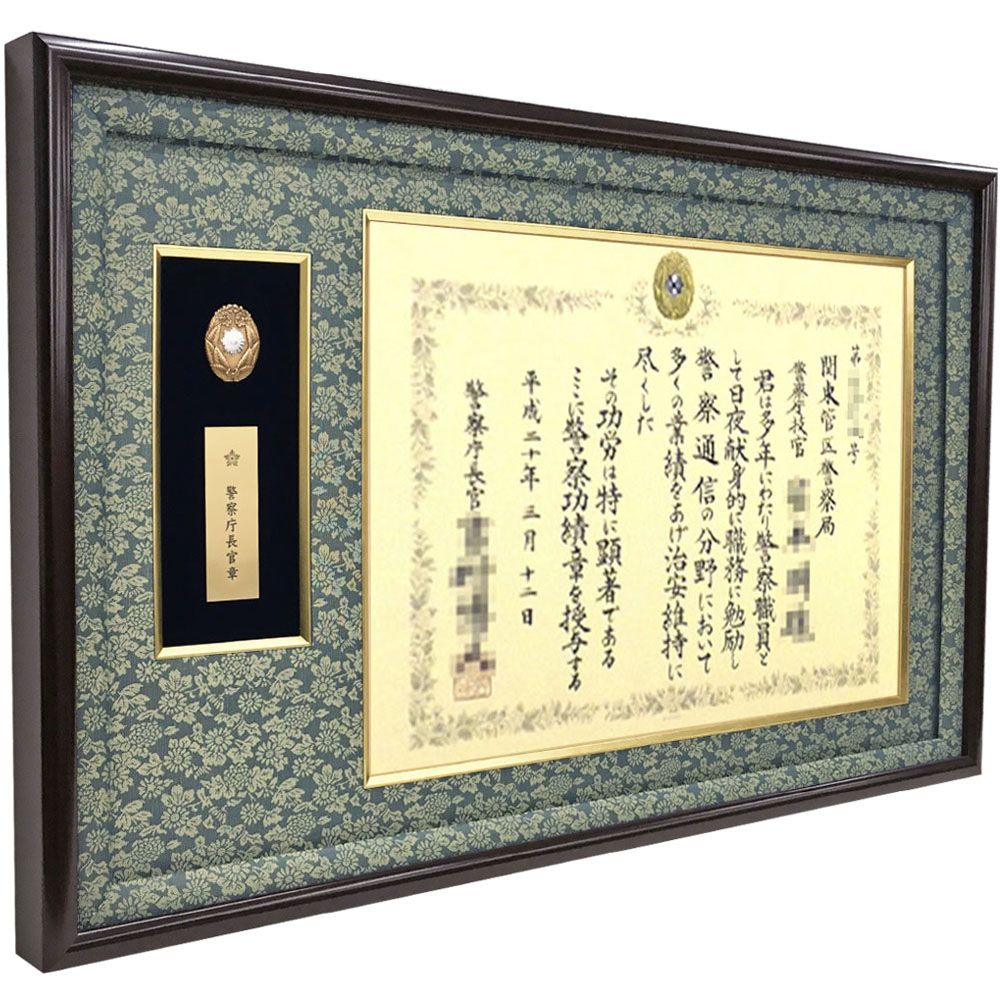 第
号
関東管区警察局
警察庁技官
君は多年にわたり警察職員と
して日夜献身的に職務に勉励し
警察通信の分野において
多くの業績をあげ治安維持に
尽くした
その功労は特に顕著である
ここに警察功績章を授与する
平成二十年三月十二日
警察庁長官
警察庁長官章